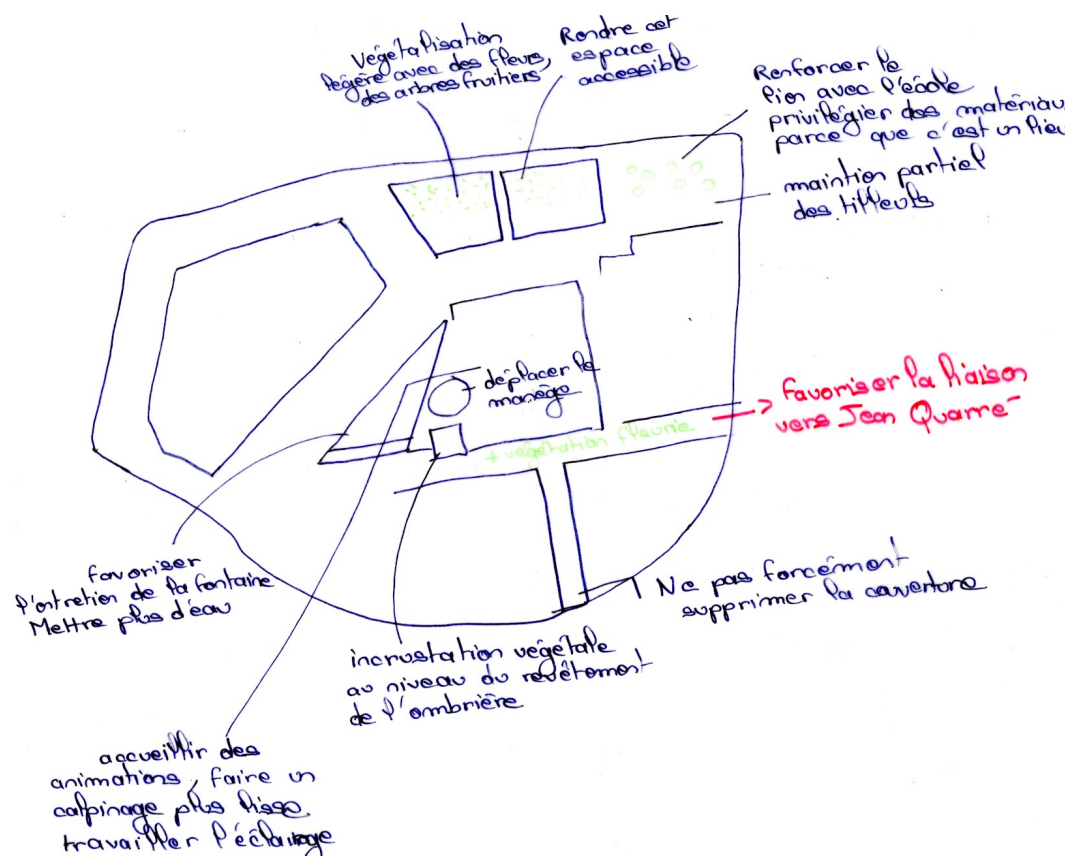 végétalisation
légère avec des fleurs,
des arbres fruitiers
Rendre cet
espace
accessible
Renforcer le
lien avec l'école
privilégier des matériau
parce que c'est un lieu
maintien partiel
des tilleuls
déplacer le
manège
+ végétation fleurie
favoriser la liaison
vers Jean Quarré
favoriser
l'entretien de la fontaine
Mettre plus d'eau
Ne pas forcément
supprimer la couverture
incrustation végétale
au niveau du revêtement
de l'ombrière
accueillir des
animations, faire un
calpinage plus lisse
travailler l'éclairage